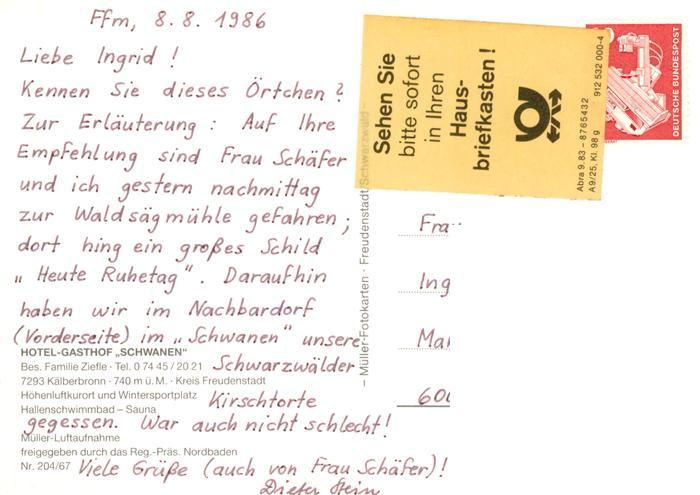 Ffm, 8. 8. 1986
Liebe Ingrid !
Kennen Sie dieses Örtchen ?
Zur Erläuterung : Auf Ihre
Empfehlung sind Frau Schäfer
und ich gestern nachmittag
zur Waldsägmühle gefahren ;
dort hing ein großes Schild
„ Heute Ruhetag ". Daraufhin
haben wir im Nachbardorf
(Vorderseite) im „ Schwanen " unsere
Schwarzwälder
Kirschtorte
gegessen. War auch nicht schlecht !
Viele Grüße (auch von Frau Schäfer) !
Dieter Stein
HOTEL-GASTHOF „SCHWANEN"
Bes. Familie Ziefle · Tel. 0 74 45 / 20 21
7293 Kälberbronn · 740 m ü. M. · Kreis Freudenstadt
Höhenluftkurort und Wintersportplatz
Hallenschwimmbad – Sauna
Müller-Luftaufnahme
freigegeben durch das Reg.-Präs. Nordbaden
Nr. 204/67
– Müller-Fotokarten · Freudenstadt/Schwarzwald –
Sehen Sie
bitte sofort
in Ihren
Haus-
briefkasten !
Abra 9.83 – 8765432 912 532 000-4
A 9/25, Kl. 98 g
DEUTSCHE BUNDESPOST
Fra
Ing
Mai
600